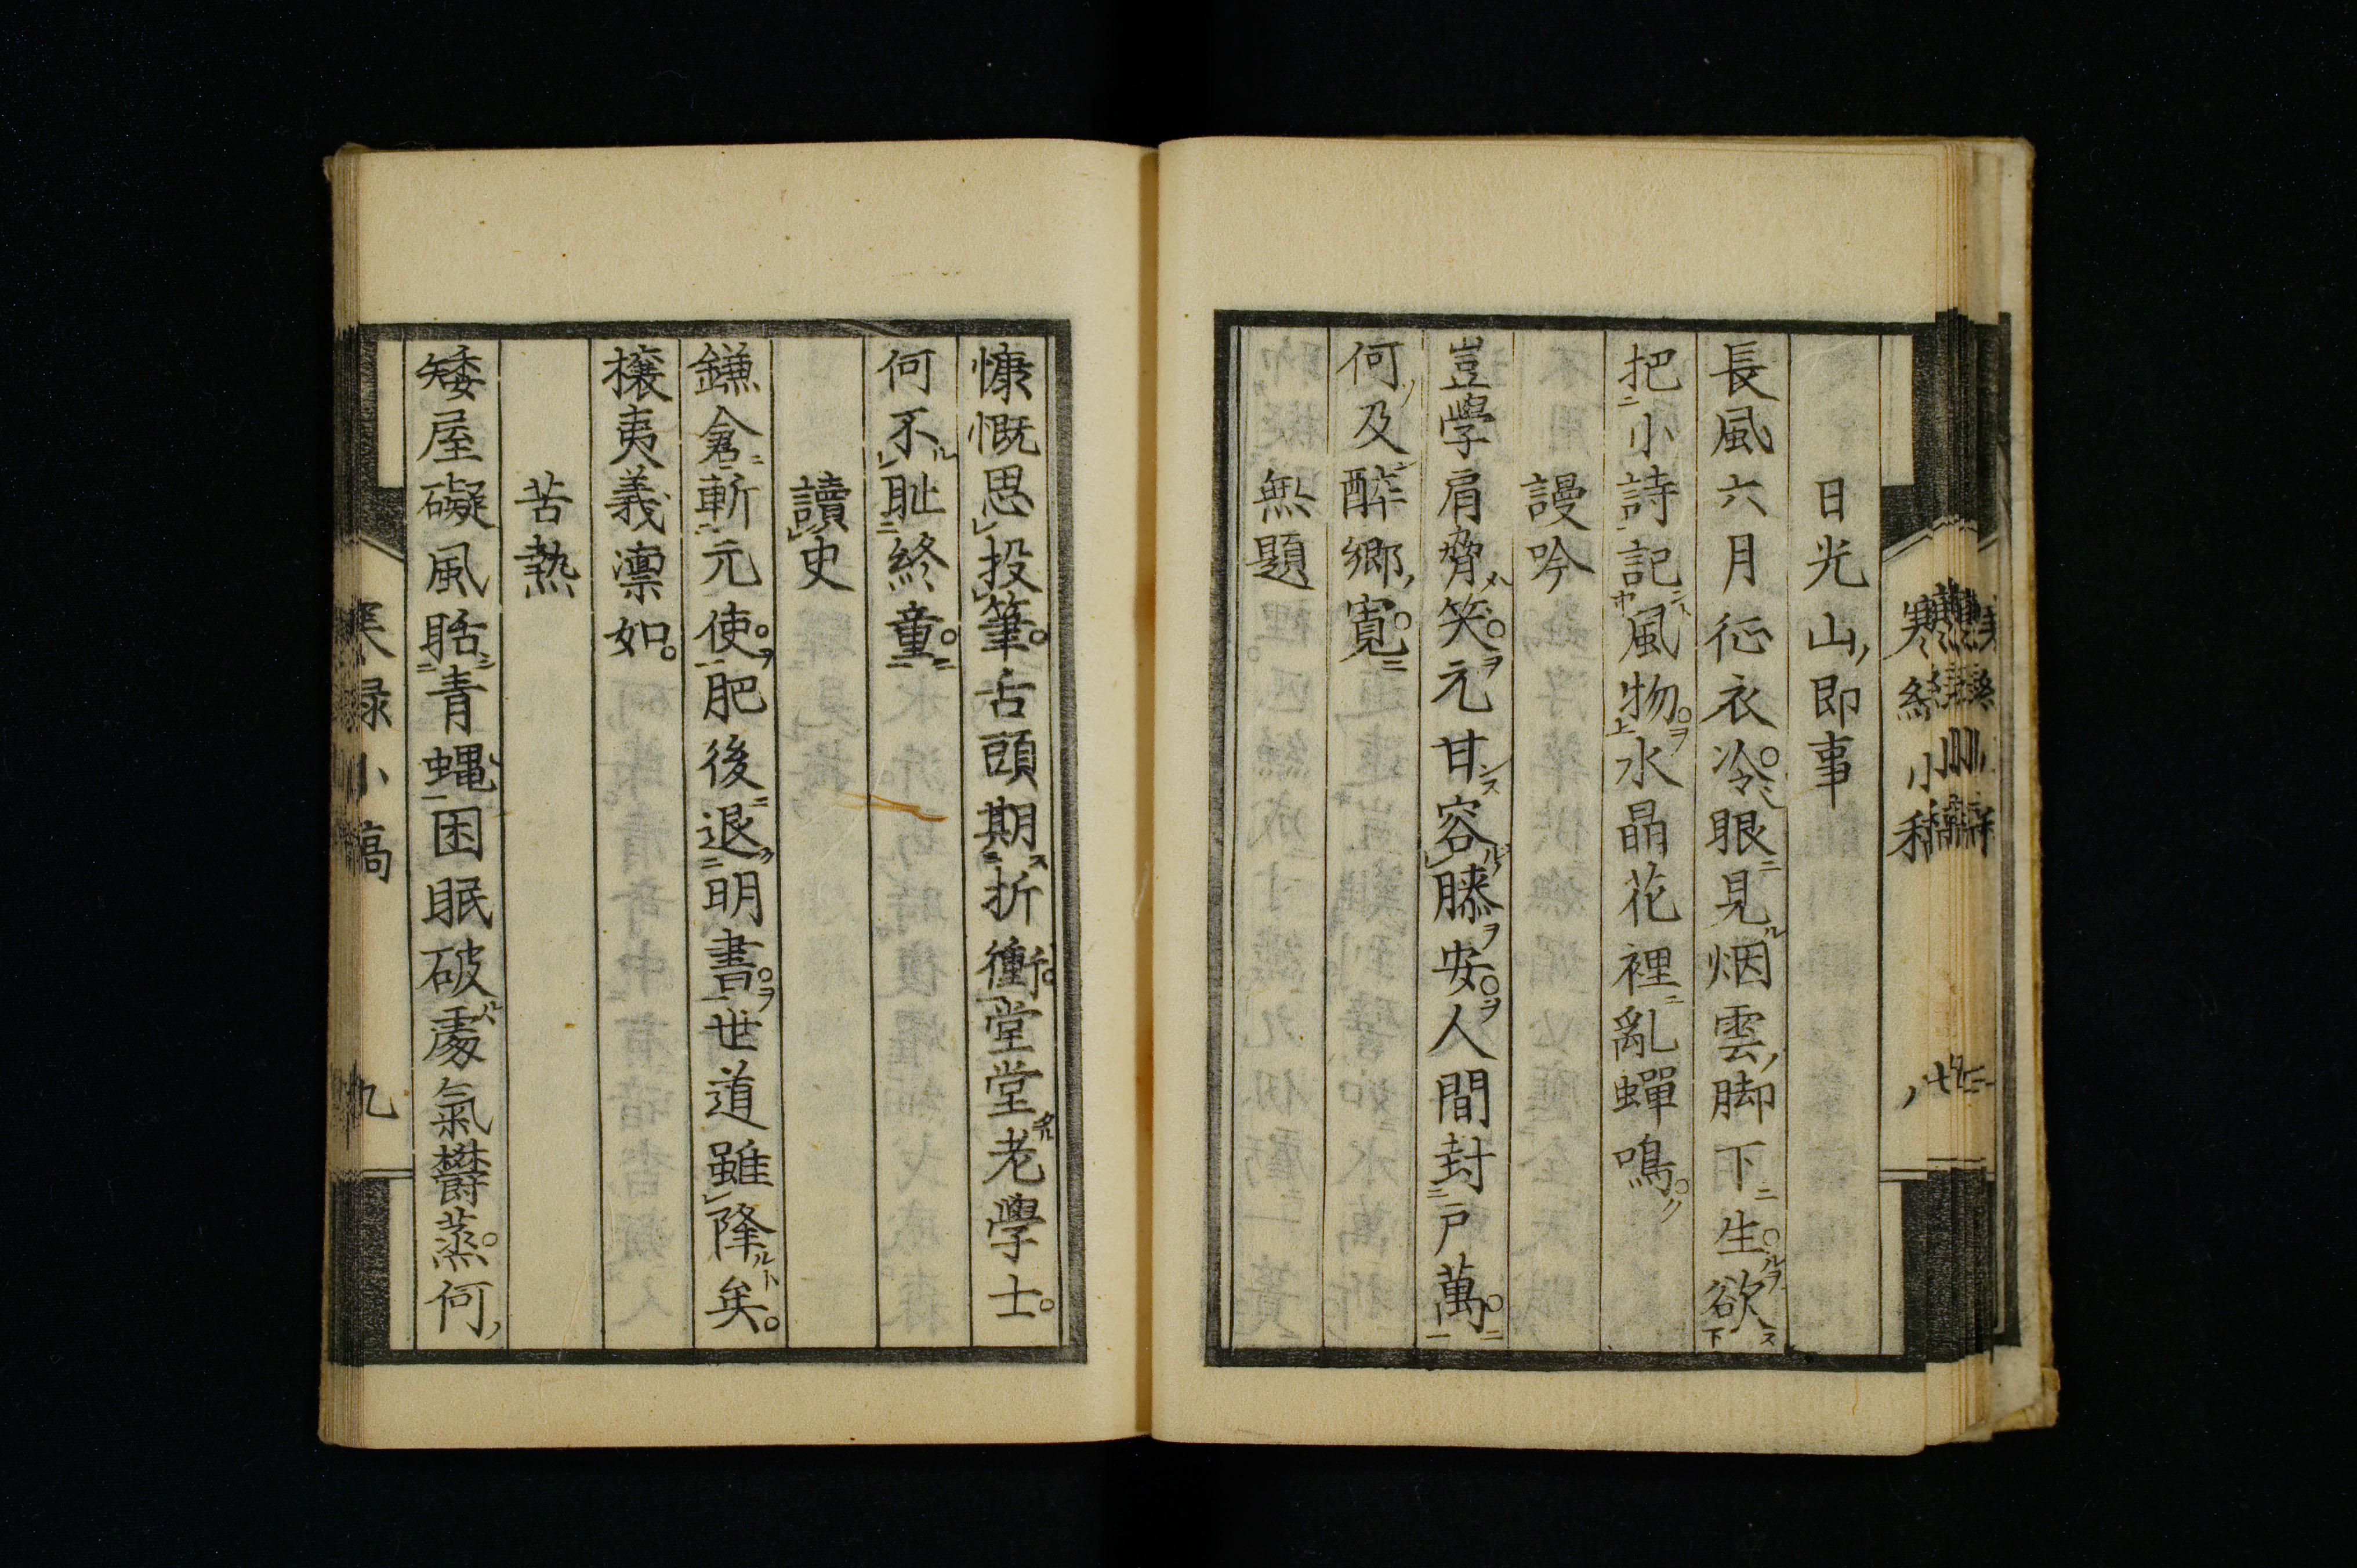 日光山即事
長風六月征衣冷眼見烟雲脚下生欲
把小詩記風物水晶花裡亂蟬鳴
謾吟
豈學肩脅笑元甘容膝安人間封戸萬
何及醉鄉寬
無題
慷慨思投筆舌頭期折衝堂堂老學士
何不耻終童
讀史
鎌倉斬元使肥後退明書世道雖隆矣
攘夷義凛如
苦熱
矮屋礙風聒青蝿困眠破處氣欝蒸何
緑小稿
九